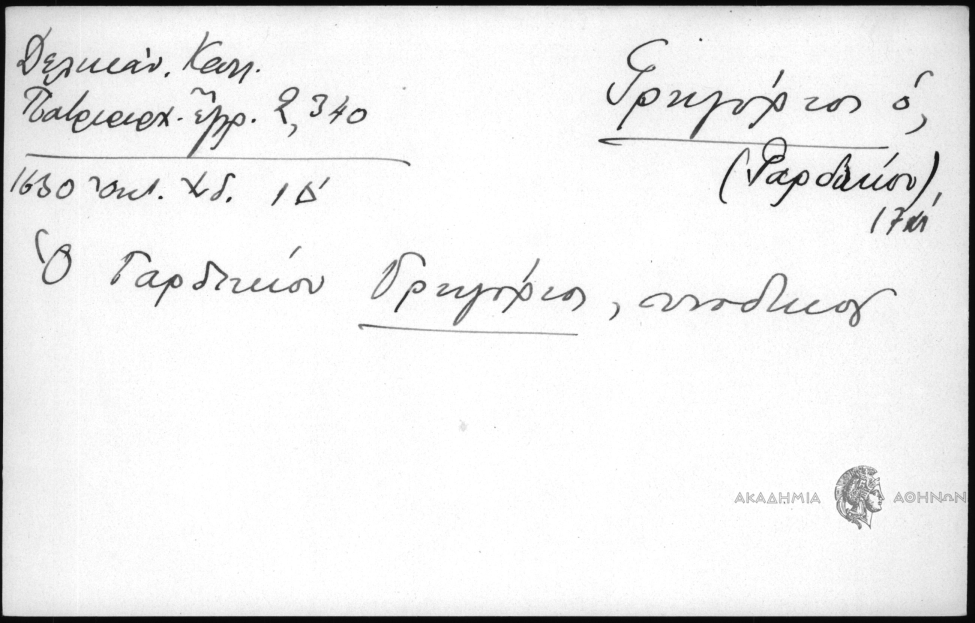 Δελικάν. Καλλ.
Πατριαρχ. ἔγγρ. 2, 340
1630 Ὀκτ. ἰνδ. ΙΔ
Γρηγόριος ὁ,
(Γαρδικίου),
17 αἰ
Ὁ Γαρδικίου Γρηγόριος, συνοδικοῦ
ΑΚΑΔΗΜΙΑ ΑΘΗΝΩΝ